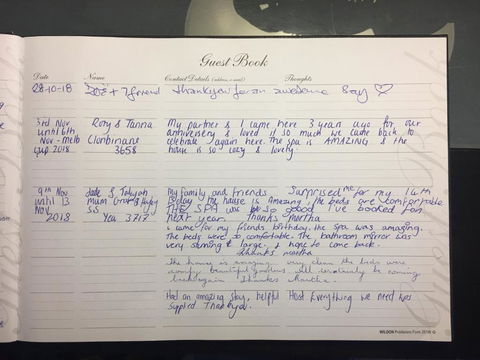 Guest Book
Date Name Contact Details (address, e-mail) Thoughts
28-10-18 + 7 friend thankyou for an awesome Stay
3rd Nov Rory & Tanna My partner & I came here 3 years ago for our
until 6th anniversery & loved it so much we came back to
Nov - melb Clonbinane celebrate again here. The spa is AMAZING & the
cup 2018 3658 house is so cozy & lovely.
9th Nov Jade & My family and friends Surprised me for my 14th
until 13 mum Grae & B'day the house is amazing, the beds are comfortable
Nov Sis THE SPA was so good I've booked for
2018 Yea 3717 next year. Thanks martha
I came for my friends birthday, the spa was amazing.
The beds were so comfortable. The bathroom mirror was
very stunning & large, I hope to come back.
Thanks martha
The house is amazing very clean the beds were
comfy beautiful gardens will certainly be coming
back again Thankes Martha.
Had an amazing stay, helpful Host Everything we need was
supplied Thankyou.
WILDON